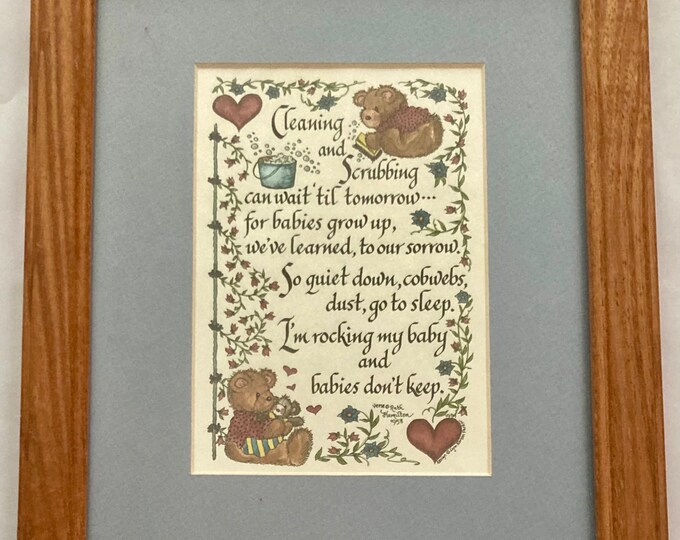 Cleaning
and
Scrubbing
can wait 'til tomorrow...
for babies grow up,
we've learned, to our sorrow.
So quiet down, cobwebs,
dust, go to sleep.
I'm rocking my baby
and
babies don't keep.
Ruth
Hamilton
1958